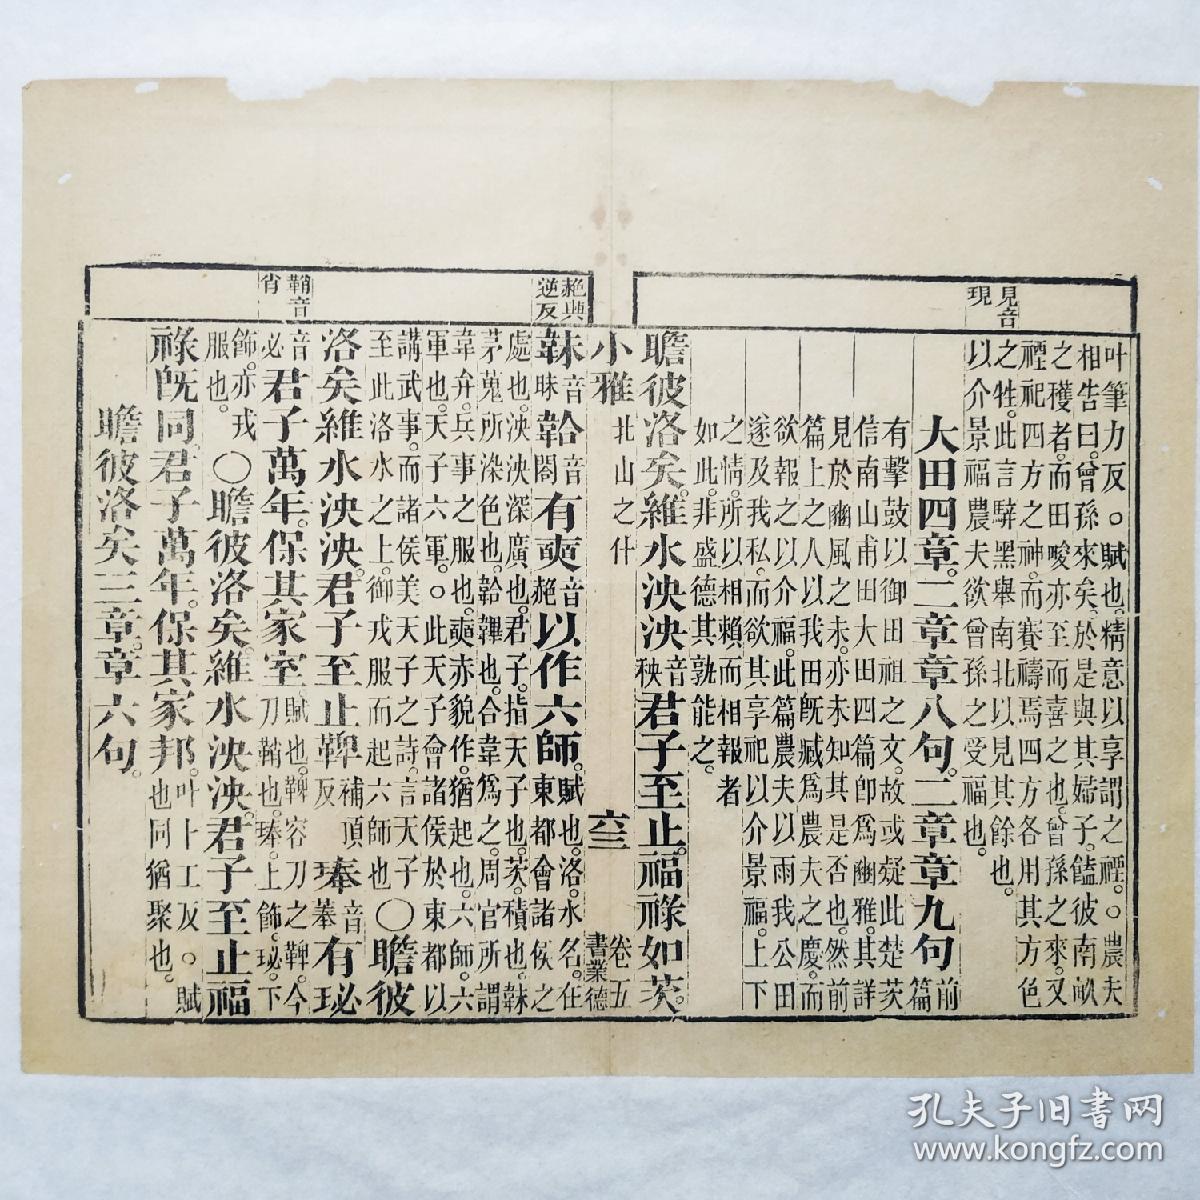 見音
現
叶筆力反。○賦也。精意以享謂之禋。○農夫
相告曰。曾孫來矣。於是與其婦子。饁彼南畝
之穫者。而田畯亦至而喜之也。曾孫之來。又
禋祀四方之神。而賽禱焉。四方各用其方色
之牲。此言騂黑。舉南北以見其餘也。
以介景福。農夫欲曾孫之受福也。
大田四章。二章章八句。二章章九句 前篇
有擊鼓以御田祖之文。故或疑此楚茨
信南山甫田大田四篇。即爲豳雅。其詳
見於豳風之末。亦未知其是否也。然前
篇上之人。以我田旣臧。爲農夫之慶。而
欲報之以介福。此篇農夫以雨我公田
遂及我私。而欲其享祀以介景福。上下
之情。所以相賴而相報者
如此。非盛德其孰能之。
瞻彼洛矣。維水泱泱。音秧君子至止。福祿如茨。
小雅 北山之什 六三 卷五 書業德
赩與
逆反
韎音昧韐音閤有奭音赩以作六師。賦也。洛。水名。在東都。會諸侯之
處也。泱泱深廣也。君子。指天子也。茨。積也。韎
茅蒐所染色也。韐。韠也。合韋爲之。周官所謂
韋弁。兵事之服也。奭。赤貌。作。猶起也。六師。六
軍也。天子六軍。○此天子會諸侯於東都以
講武事。而諸侯美天子之詩。言天子
至此洛水之上。御戎服而起六師也○瞻彼
鞘音
肖
洛矣。維水泱泱。君子至止。鞞補頂反琫音菶有珌
音必君子萬年。保其家室。賦也。鞞。容刀之鞞。今刀鞘也。琫。上飾。珌。下
飾。亦戎服也。○瞻彼洛矣。維水泱泱。君子至止。福
祿旣同。君子萬年。保其家邦。叶卜工反。○賦也同猶聚也。
瞻彼洛矣三章。章六句。
孔夫子旧书网
www.kongfz.com